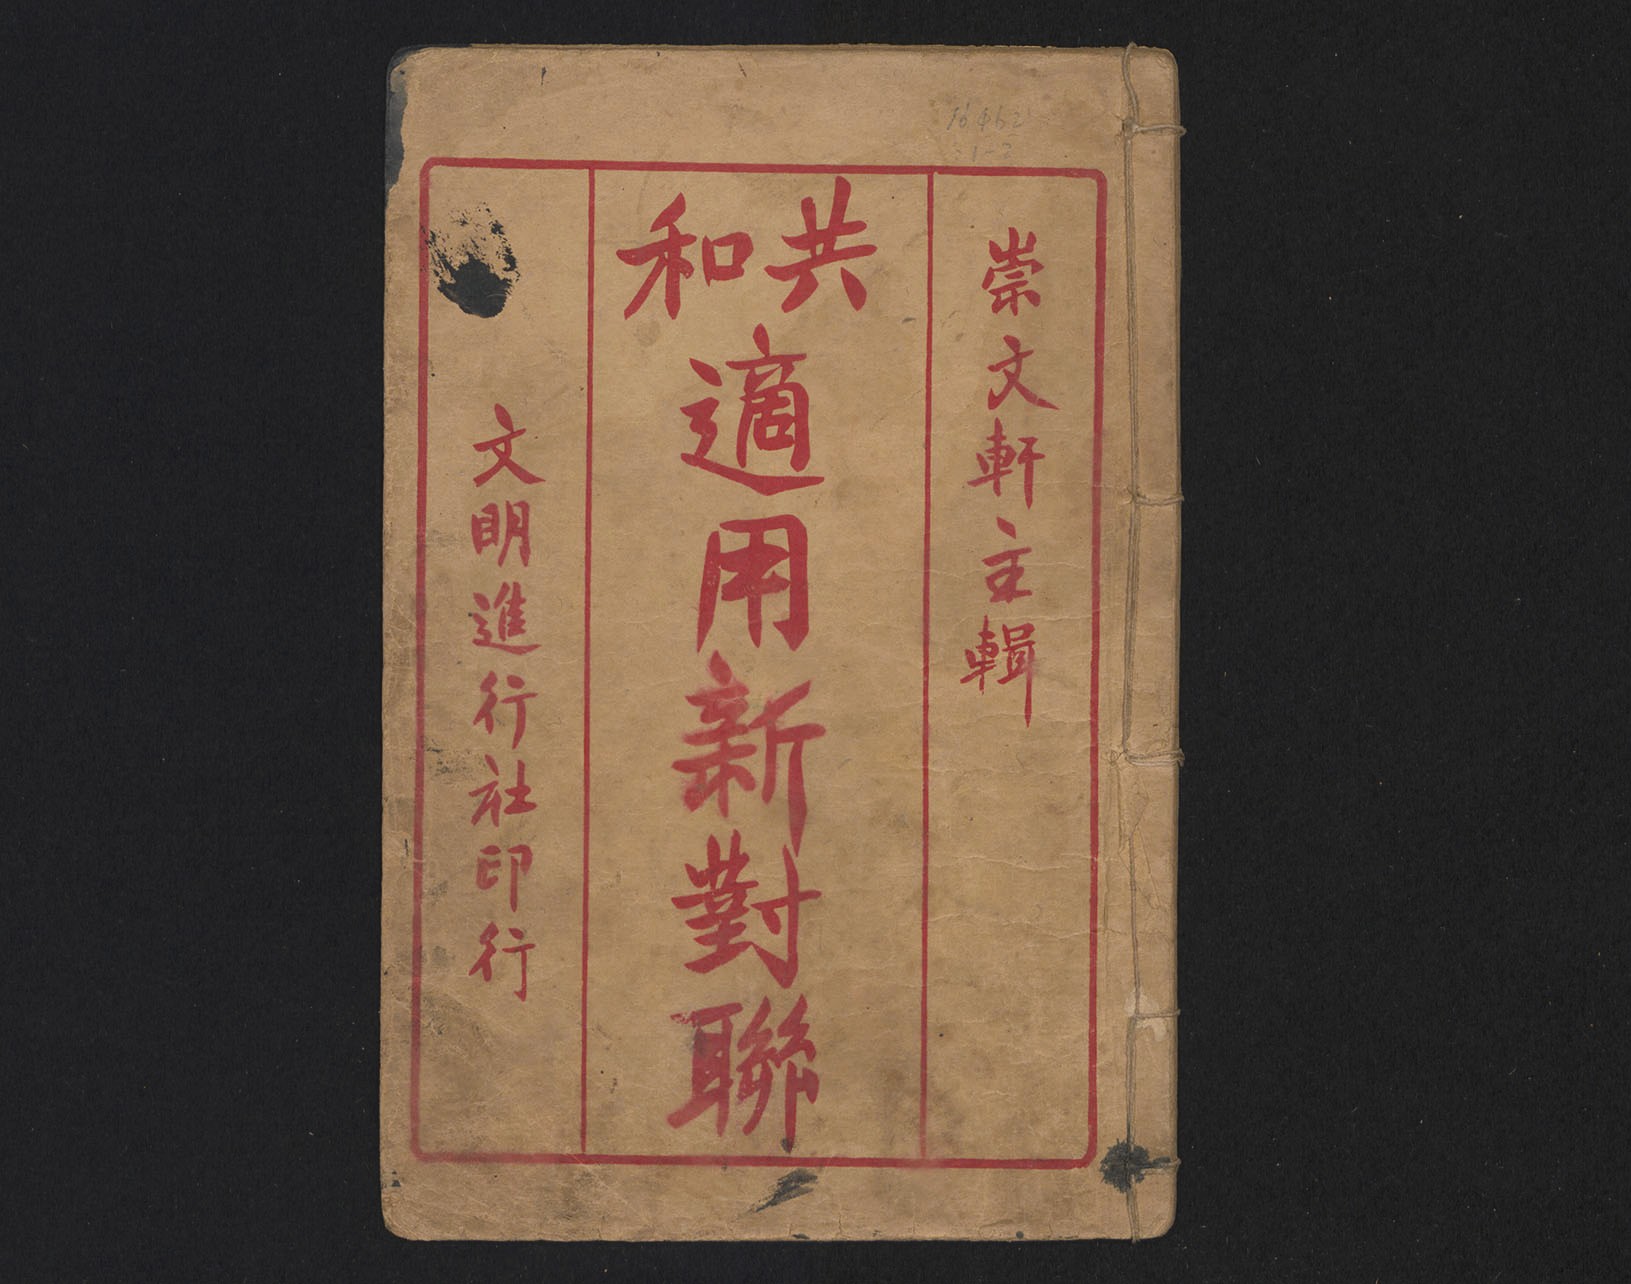 崇文軒主輯
共和
適用新對聯
文明進行社印行
16462
1-2